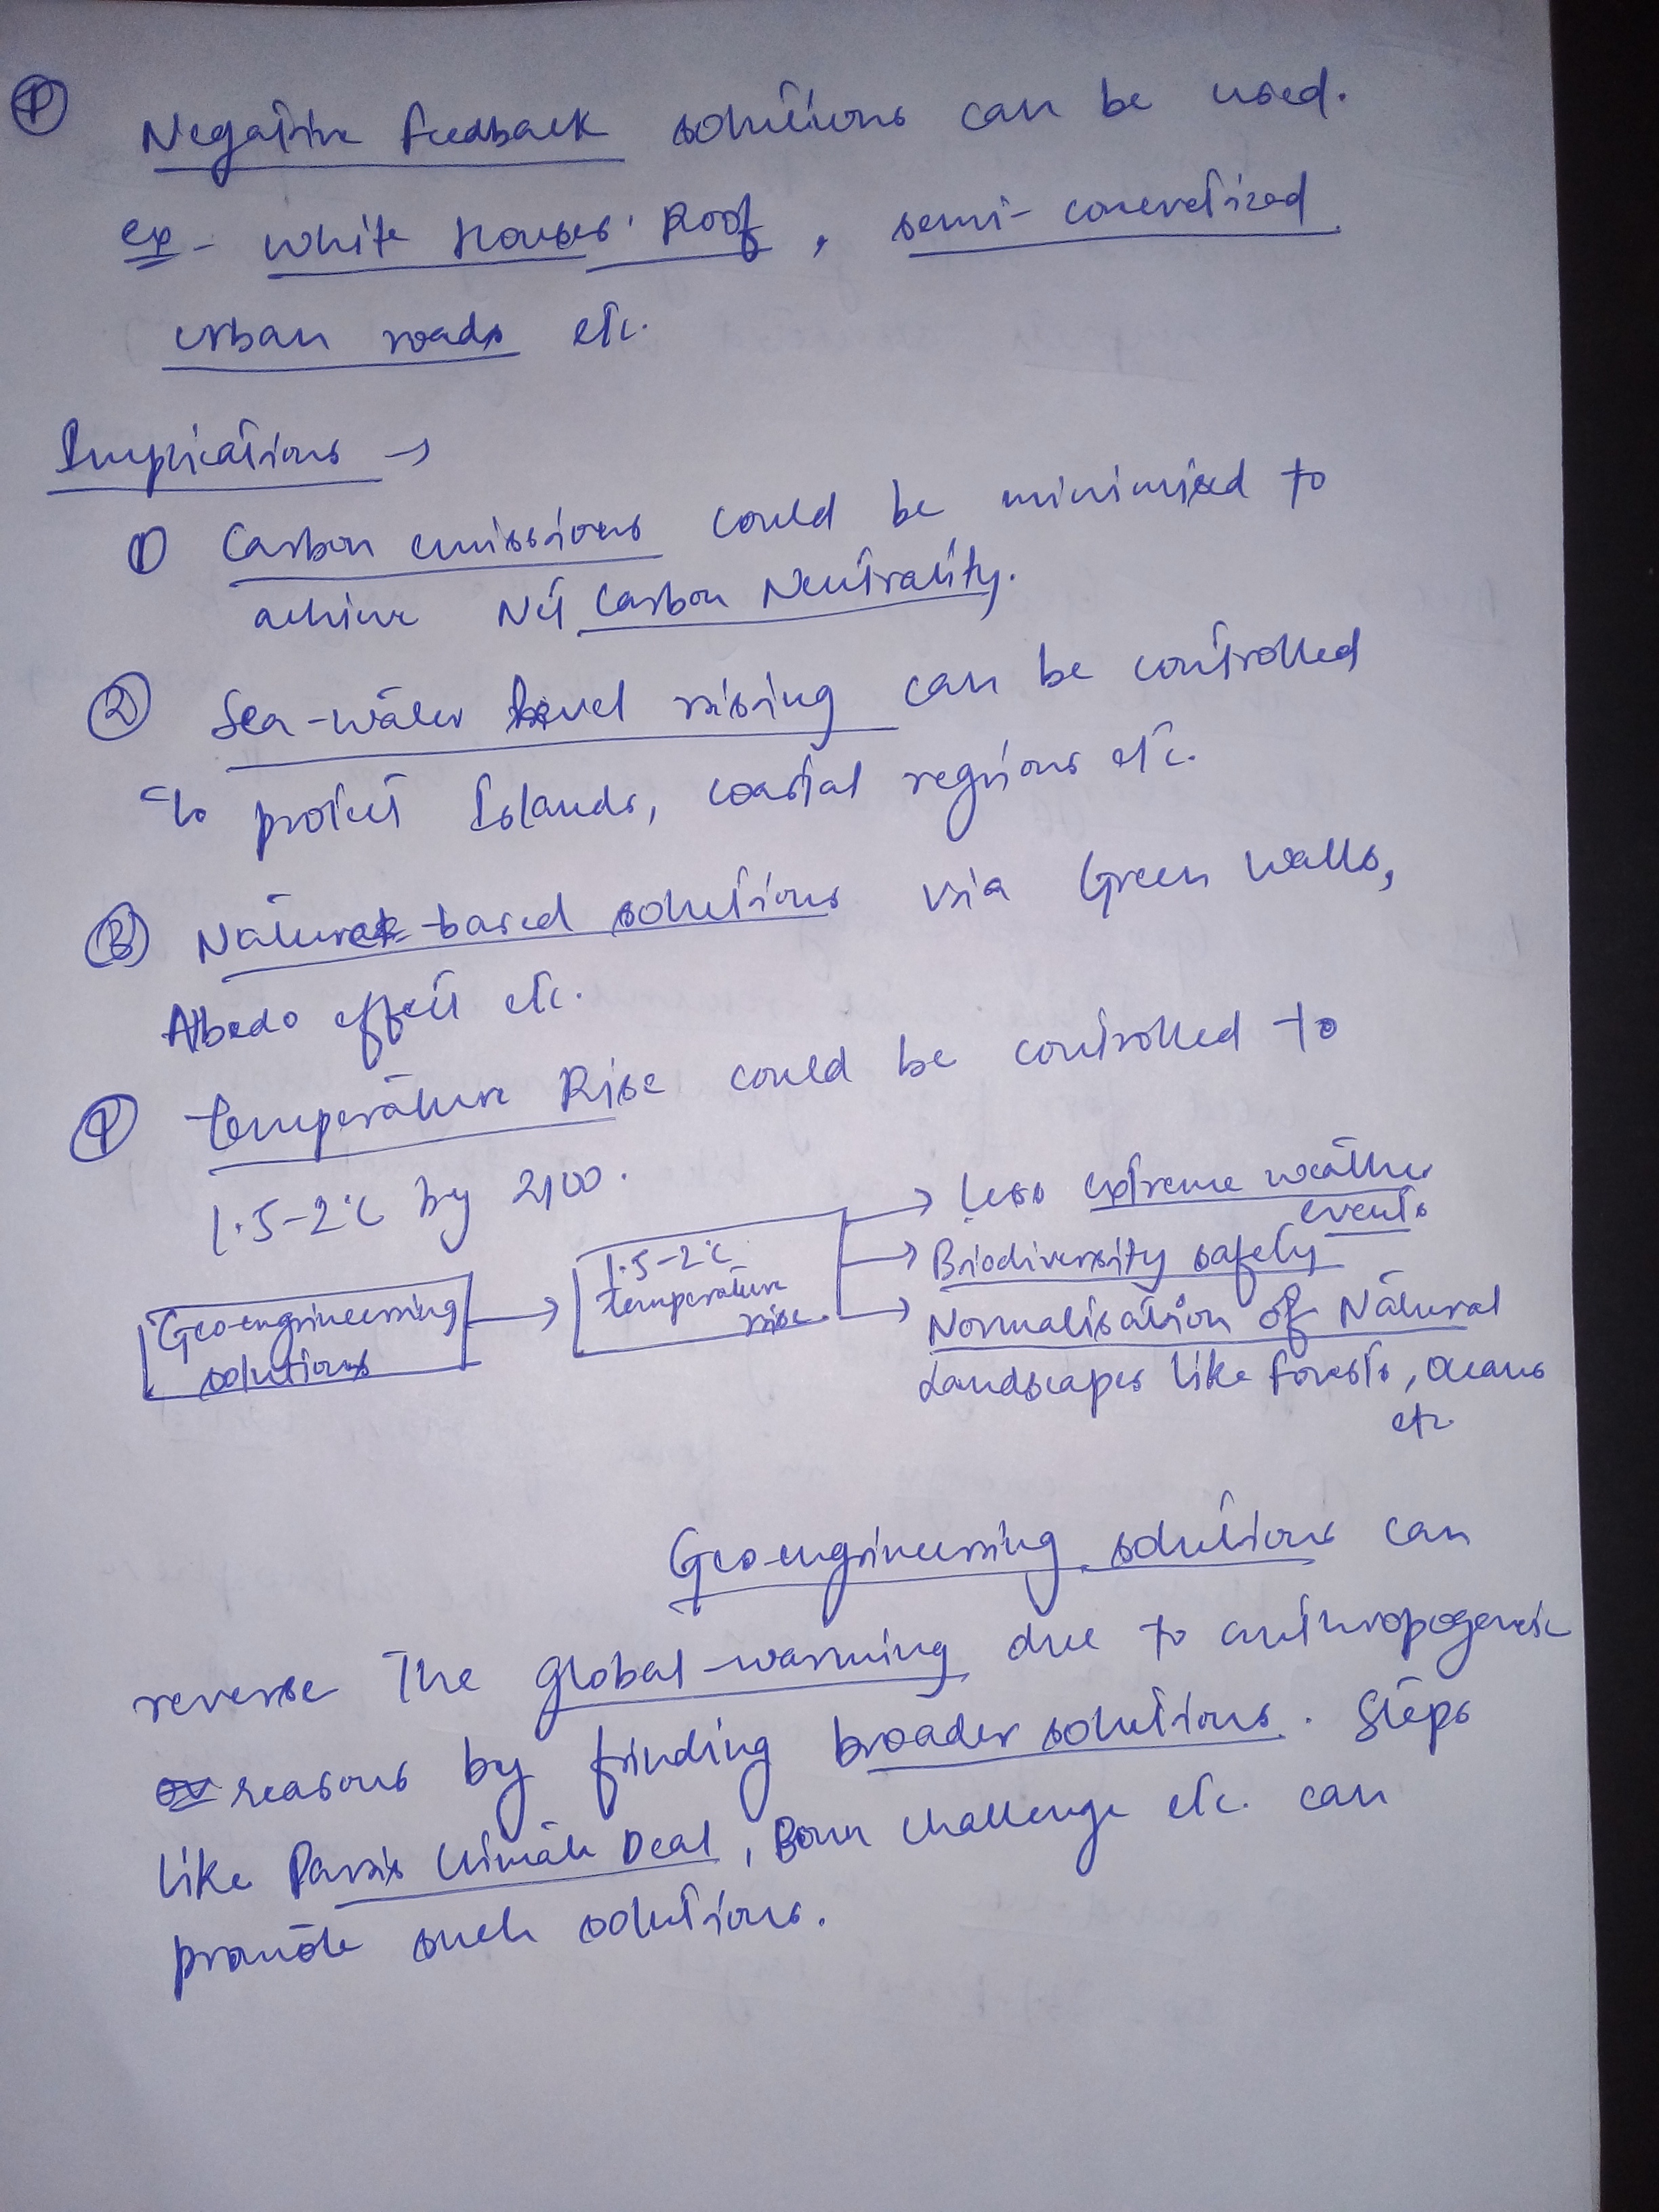 ④ Negative feedback solutions can be used.
ex- White Houses' Roof, semi-concretized
urban roads etc.
Implications →
① Carbon emissions could be minimised to
achieve Net Carbon Neutrality.
② Sea-water level rising can be controlled
to protect Islands, coastal regions etc.
③ Nature-based solutions via Green walls,
Albedo effect etc.
④ Temperature Rise could be controlled to
1.5-2°C by 2100.
Geo-engineering solutions → 1.5-2°C temperature rise.
→ Less extreme weather events
→ Biodiversity safety
→ Normalisation of Natural
Landscapes like forests, Oceans
etc
Geo-engineering solutions can
reverse the global-warming due to anthropogenic
reasons by finding broader solutions. Steps
like Paris Climate Deal, Bonn Challenge etc. can
promote such solutions.